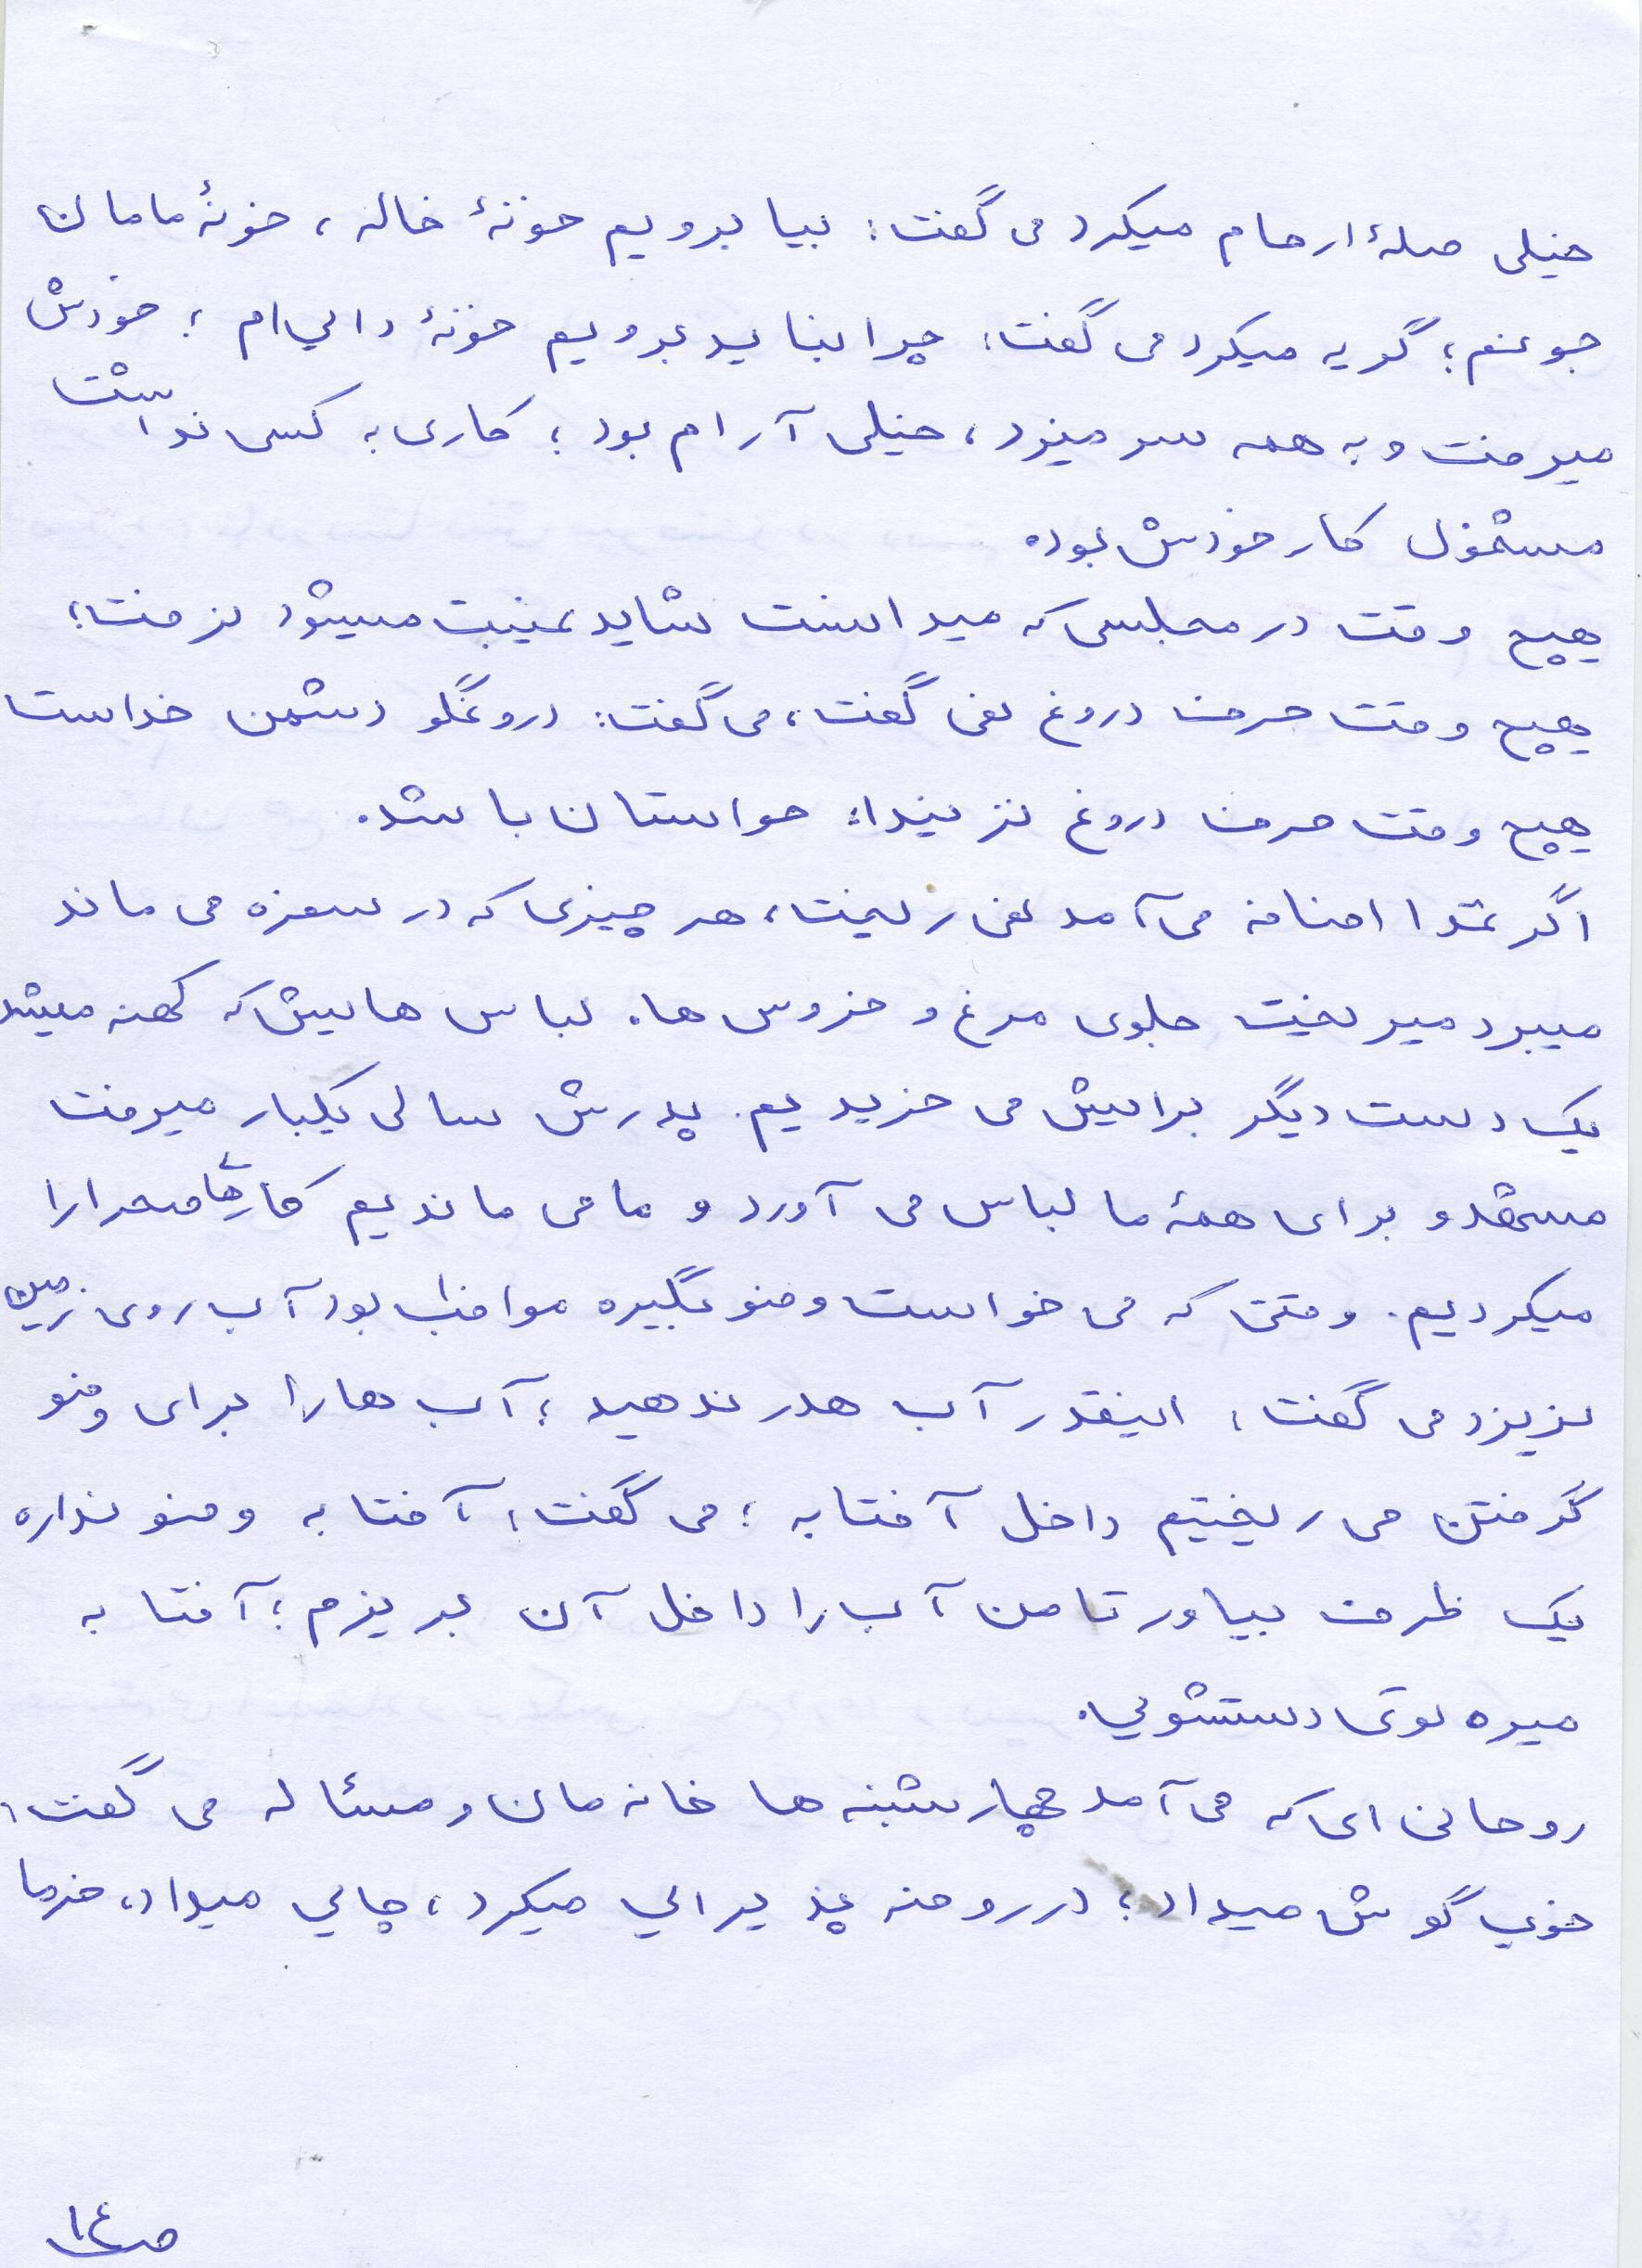 خیلی صلۀ ارحام میکرد می گفت: بیا برویم خونۀ خاله، خونۀ مامان
جوعنم؛ گریه میکرد می گفت: چرا نباید برویم خونۀ دایی ام؛ خودش
میرفت و به همه سر میزد، خیلی آرام بود؛ کاری به کسی نداشت
مشغول کار خودش بود.
هیچ وقت در مجلسی که میدانست شاید غیبت میشود نرفت؛
هیچ وقت حرف دروغ نمی گفت، می گفت: دروغگو دشمن خداست
هیچ وقت حرف دروغ نزنیدا؛ حواستان باشد.
اگر غذا اضافه می آمد نمی ریخت، هر چیزی که در سفره می ماند
میبرد میریخت جلوی مرغ و خروس ها. لباس هایش که کهنه میشد
یک دست دیگر برایش می خریدیم. پدرش سالی یکبار میرفت
مشهد و برای همۀ ما لباس می آورد و ما می ماندیم کارهای صحرا را
میکردیم. وقتی که می خواست وضو بگیره مواظب بود آب روی زمین
نریزد می گفت: اینقدر آب هدر ندهید؛ آب ها را برای وضو
گرفتن می ریختیم داخل آفتابه؛ می گفت: آفتابه وضو نداره
یک ظرف بیاور تا من آب را داخل آن بریزم؛ آفتابه
میره توی دستشویی.
روحانی ای که می آمد چهارشنبه ها خانه مان و مسئاله می گفت،
خوب گوش میداد؛ در روضه پذیرایی میکرد، چایی میداد، خرما
ص۱٤